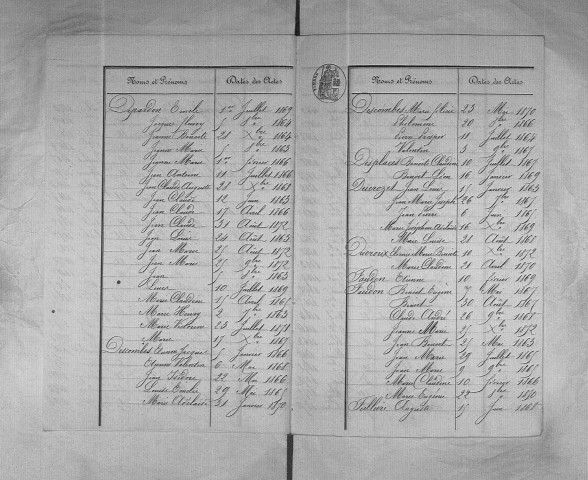 Noms et Prénoms Dates des Actes
Depardon Emile 1er Juillet 1869
Jacques Henry 1 8bre 1864
Jeanne Benoite 21 Xbre 1864
Jeanne Marie 5 1863
Jeanne Marie 1er février 1866
Jean Antoine 11 Juillet 1866
Jean Claude Auguste 28 Xbre 1868
Jean Claude 12 Juin 1863
Jean Claude 17 Avril 1866
Jean Claude 31 Août 1872
Jean Louis 24 Août 1863
Jean Marie 2 Août 1872
Jean Marie 27 9bre 1872
Jean 1863
Louis 10 Juillet 1869
Marie Claudine 17 Avril
Marie Henry 2 1863
Marie Victorine 23 Juillet 1871
Marie 17 Xbre
Descombes Etienne Jacques 5 Janvier 1866
Etienne Valentin 6 Mai 1868
Jean Isidore 22 Mai 1866
Louise Emélie 29 Mai
Marie Adélaïde 31 Janvier 1870
Noms et Prénoms Dates des Actes
Descombes Marie 23 Mai 1870
Philomène 20 1866
Pierre Prosper 11 Juillet 1864
Valentin 3 9bre
Desplaces Benoit Claudien 10 Juillet
Benoit Léon 16 Janvier 1869
Ducrozet Jean Louis 15 Janvier 1863
Jean Marie Joseph 26
Jean Pierre 6 Juin
Marie Joséphine Adélaïde 16 Xbre 1869
Marie Louise 21 Août 1868
Ducroux Louis Marie Benoit 10 Xbre 1872
Marie Claudine 21 Avril 1870
Faudon Etienne 10 février 1869
Faudon Benoit Eugène 7 Mai 1867
Benoit 30 Août 1867
Claude André 26 9bre 1868
Jeanne Marie 21 Xbre 1872
Jean Benoit 21 Mai 1863
Jean Marie 29 Juillet
Jean Marie 9 9bre
Marie Claudine 10 février 1866
Marie Eugénie 22 1870
Auguste 15 Juin 1868